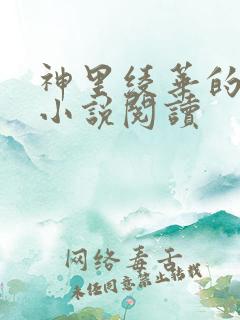 神里綾華的
小說閱讀
网络毒舌
未经同意禁止转载